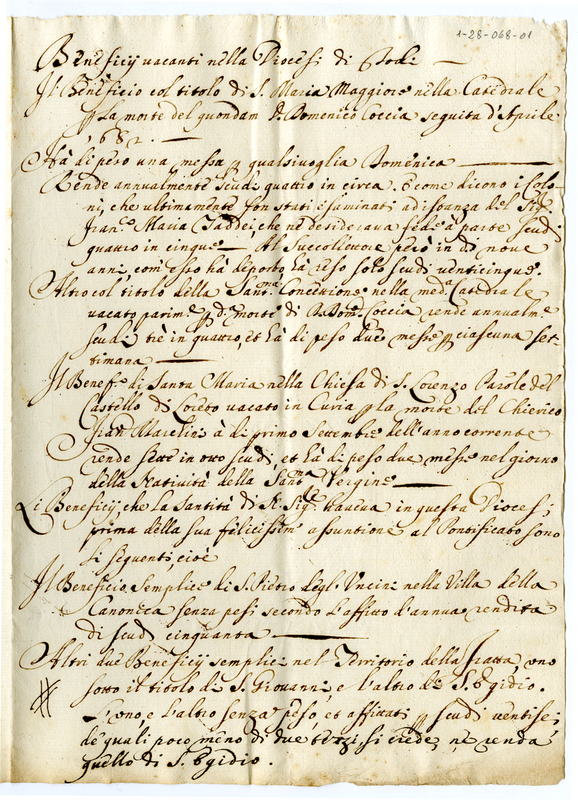 1-28-068-01
Beneficij vacanti nella Diocesi di Todi
Il Beneficio col titolo di S. Maria Maggiore nella Catedrale
p la morte del quondam Dn Domenico Coccia seguita d'Aprile
1682.
Hà di peso una messa p qualsivoglia Domenica
Rende annualmente scudi quattro in circa. E come dicono i Colo-
ni, che ultimamente son stati esaminati ad istanza del Sigr
Franco Maria Taddei, che ne desiderava fede à parte scudi
quattro in cinque. Al Succollettore però in di nove
anni, com' esso hà deposto hà reso solo scudi venticinque.
Altro col titolo della Santma Concettione nella meda Catedrale
vacato parimte p da morte di Dn Domco Coccia rende annualmte
scudi trè in quattro, et hà di peso due messe p ciascuna set-
timana
Il Benefo di Santa Maria nella Chiesa di S. Lorenzo Parole del
Castello di Loreto vacato in Curia p la morte del Chierico
Gian Marelini à di primo Settembre dell'anno corrente
rende sette in otto scudi, et hà di peso due messe nel giorno
della Natività della Santma Vergine
Li Beneficij, che la Santità di N. Sigre haveva in questa Diocesi
prima della sua felicissma assuntione al Pontificato sono
li seguenti, cioè
Il Beneficio Semplice di S. Pietro degl' Uncini nella Villa della
Canonica senza pesi secondo l'affitto d'annua rendita
di scudi cinquanta
Altri due Beneficij semplici nel Territorio della Fratta, uno
sotto il titolo di S. Giovanni, e l'altro di S. Egidio.
L'uno, e l'altro senza peso, et affittati p scudi ventisei,
de quali poco meno di due terzi si crede, ne renda
quello di S. Egidio.